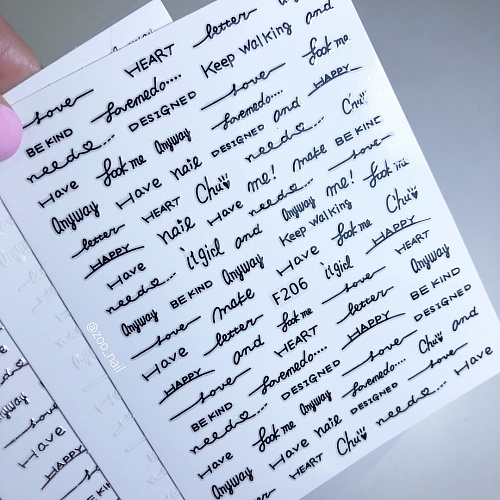 letter and
HEART Keep walking
love Lovemedo.... love look me
BE KIND DESIGNED Lovemedo... and HAPPY
need♡.... look me Anyway DESIGNED need♡.... Chu
Have Have naie me! make BE KIND
Anyway HEART Chu Have need♡... love
letter naie Anyway me! look me
HAPPY and Keep walking Chu
Have i'l girl Have look me HAPPY
need♡... BE KIND Anyway i'l girl HEART
Anyway make F206 love Anyway
love letter look me letter BE KIND
Have and HEART HAPPY DESIGNED
HAPPY Lovemedo.... love Chu and
love DESIGNED Lovemedo.... love
BE KIND look me Anyway DESIGNED Have
need♡.... Have naie need♡...
Have HEART Chu
Anyway letter
@zoo_nail
Anyway
love
Have
HAPPY